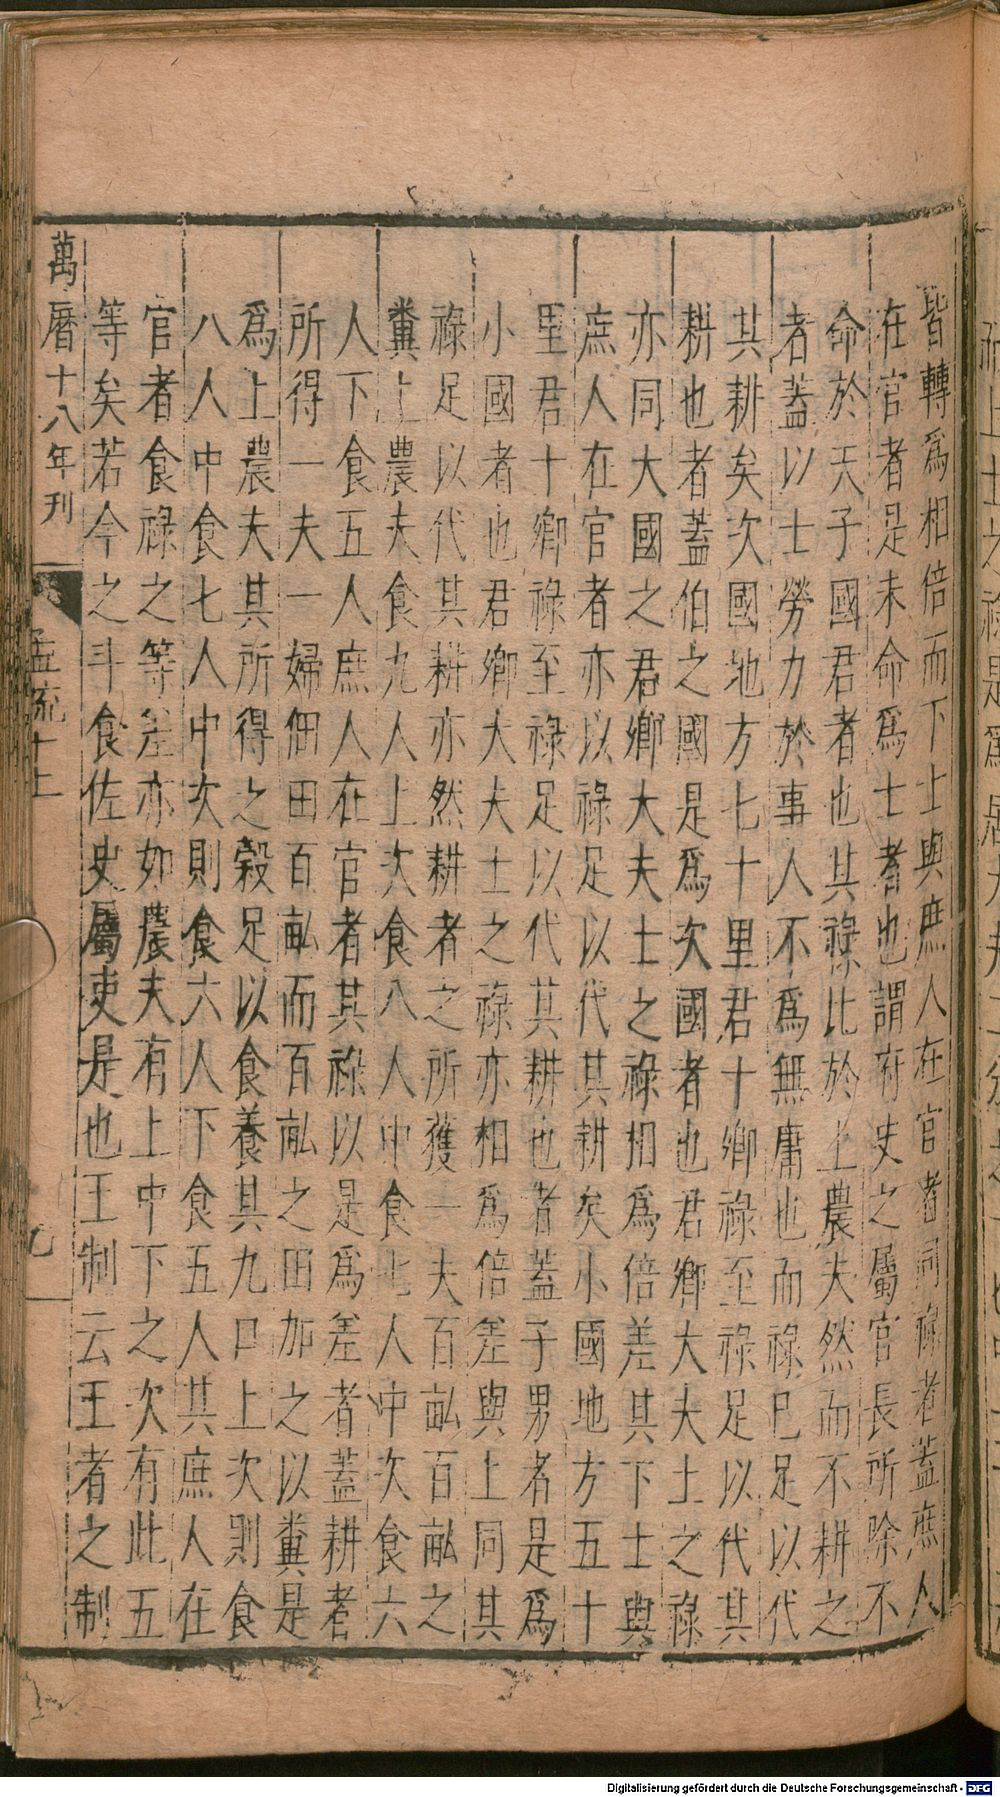 皆轉爲相倍而下上與庶人在官者同祿者蓋庶人
在官者是未命爲士者也謂府史之屬官長所除不
命於天子國君者也其祿比於上農夫然而不耕之
者蓋以士勞力於事人不爲無庸也而祿已足以代
其耕矣次國地方七十里君十卿祿至祿足以代其
耕也者蓋伯之國是爲次國者也君卿大夫士之祿
亦同大國之君卿大夫士之祿相爲倍差其下士與
庶人在官者亦以祿足以代其耕矣小國地方五十
里君十卿祿至祿足以代其耕也者蓋子男者是爲
小國者也君卿大夫士之祿亦相爲倍差與上同其
祿足以代其耕亦然耕者之所獲一夫百畝百畝之
糞上農夫食九人上次食八人中食七人中次食六
人下食五人庶人在官者其祿以是爲差者蓋耕者
所得一夫一婦佃田百畝而百畝之田加之以糞是
爲上農夫其所得之穀足以食養其九口上次則食
八人中食七人中次則食六人下食五人其庶人在
官者食祿之等差亦如農夫有上中下之次有此五
等矣若今之斗食佐史屬吏是也王制云王者之制
萬曆十八年刊
孟疏十上
九
Digitalisierung gefördert durch die Deutsche Forschungsgemeinschaft - DFG